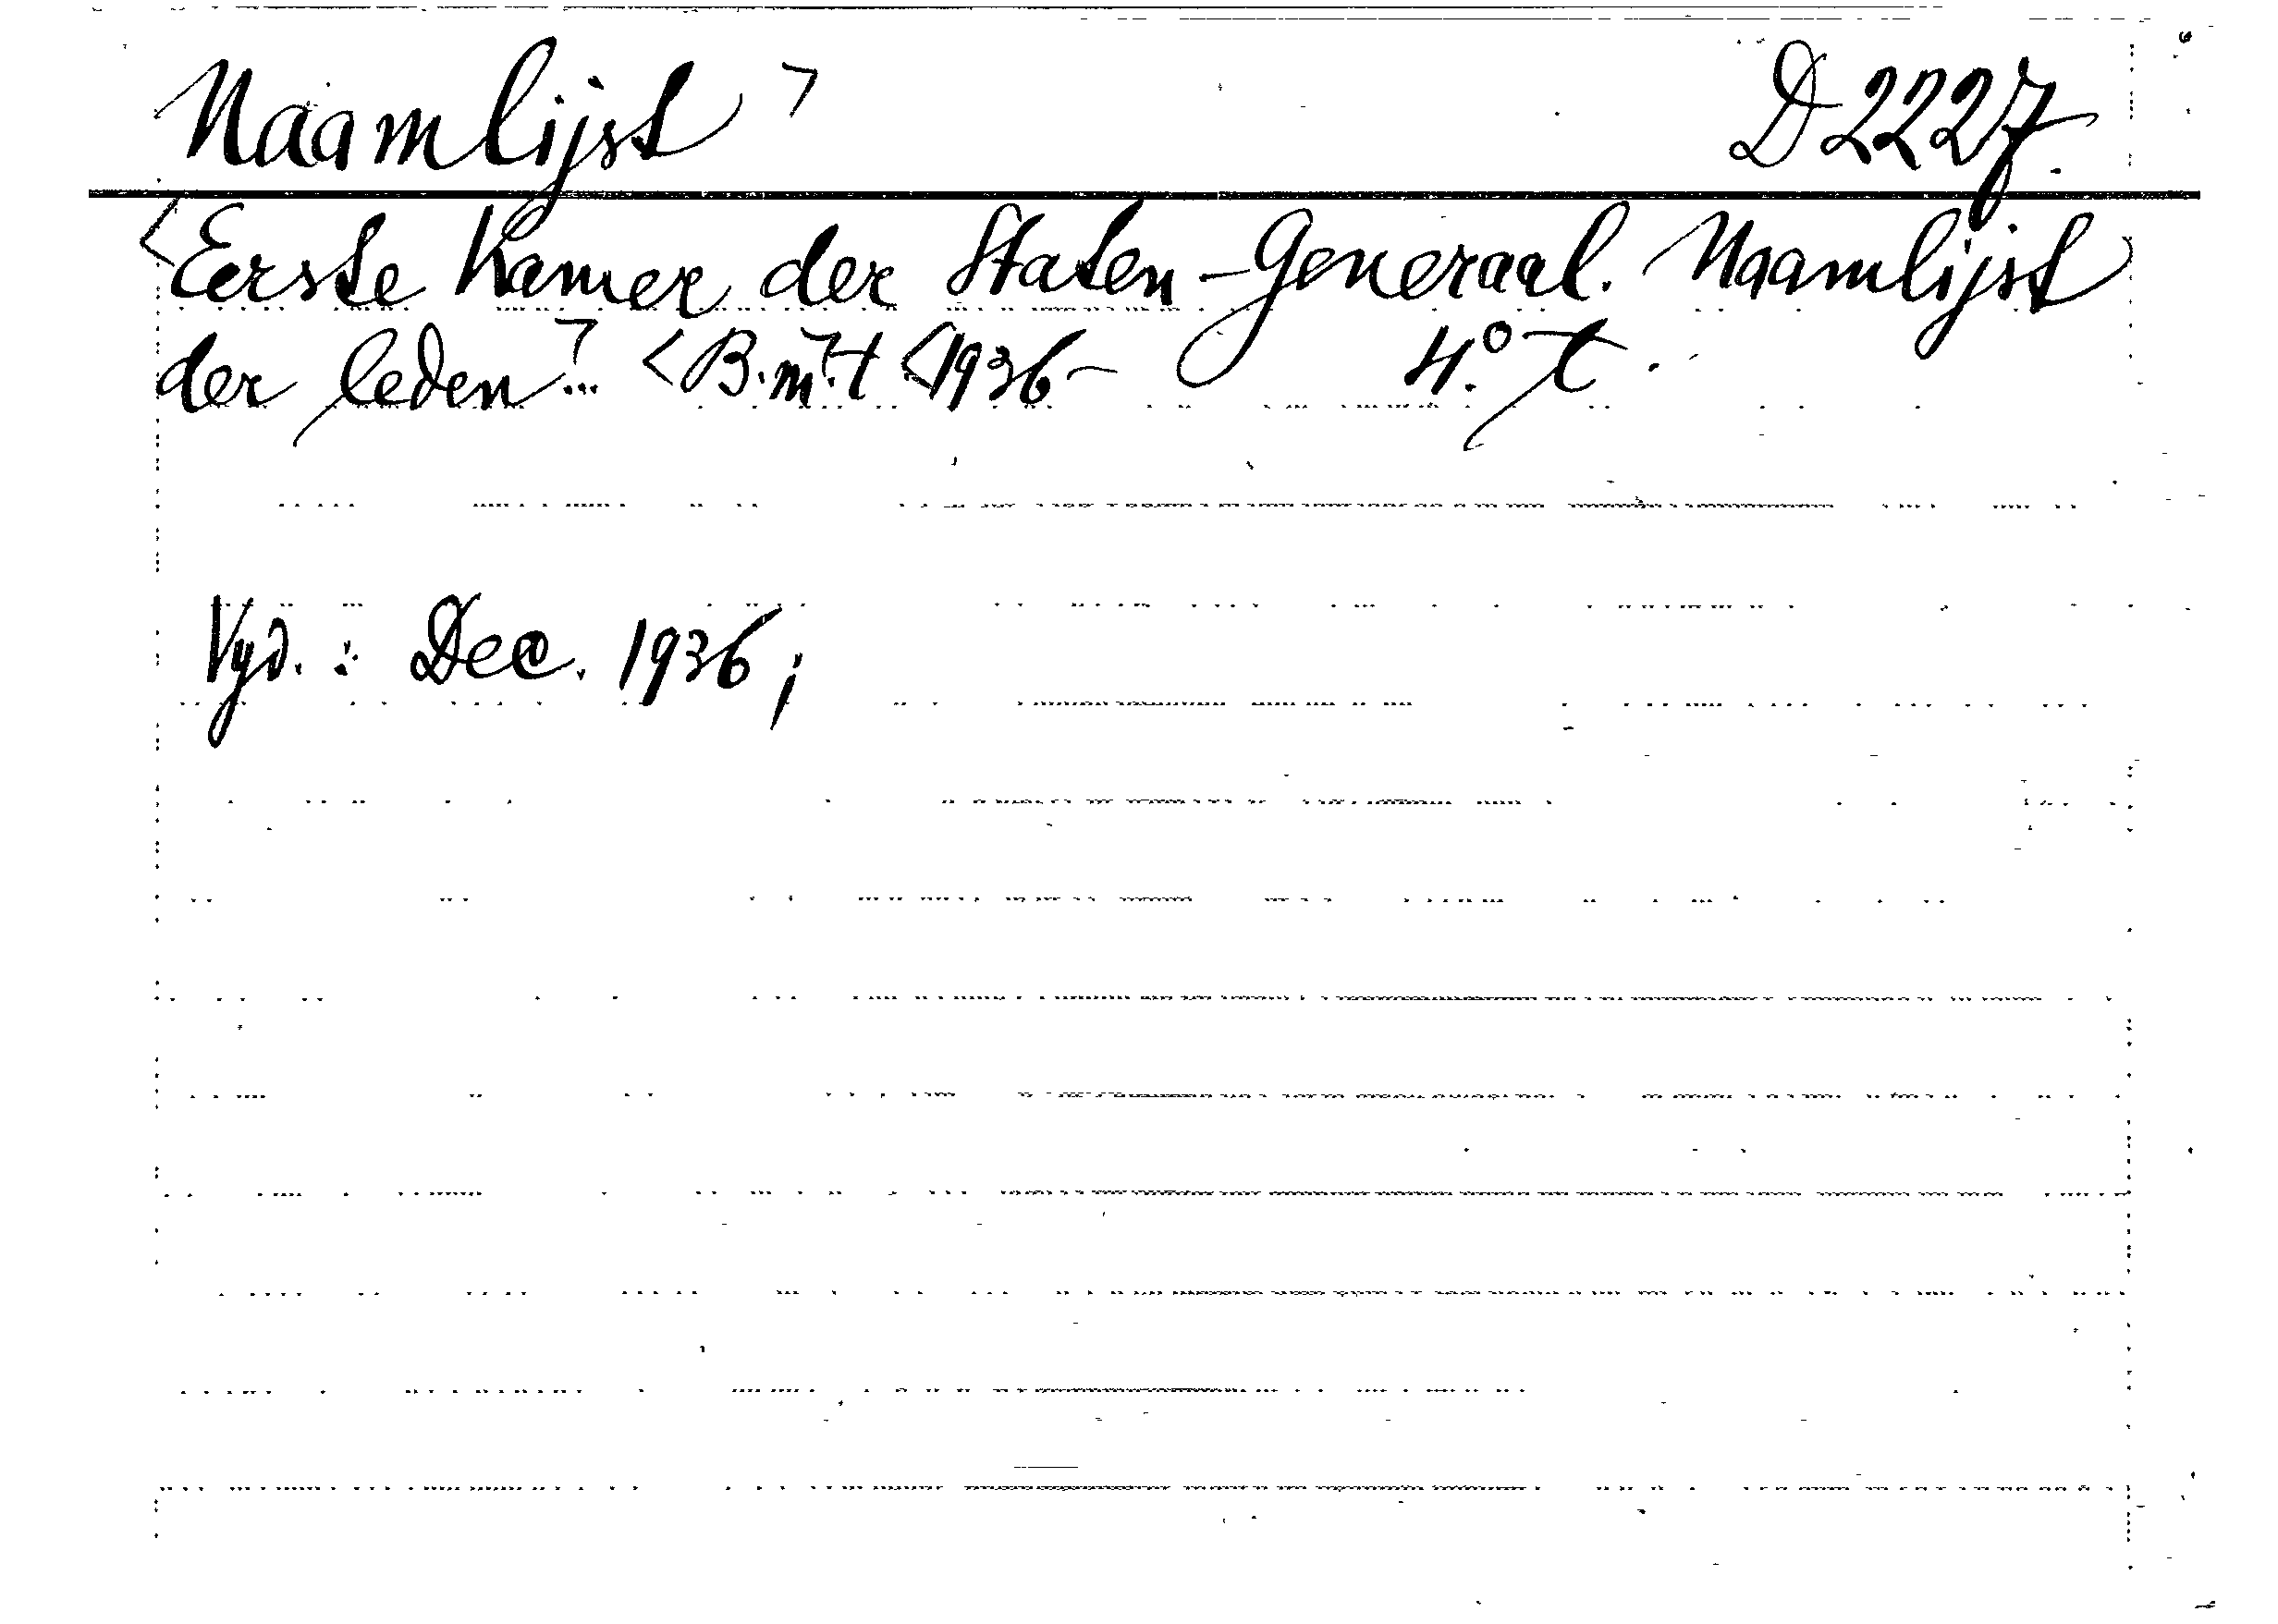 Naamlijst ⁊ D 2227.
<Eerste Kamer der Staten-Generaal. Naamlijst
der leden⁊... <B.m.⁊ t <1936- 4.° t.
Vyd.: Dec. 1936;